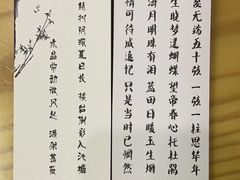 瑟无端五十弦 一弦一柱思华年
生晓梦迷蝴蝶 望帝春心托杜鹃
海月明珠有泪 蓝田日暖玉生烟
情可待成追忆 只是当时已惘然
绿树阴浓夏日长 楼台倒影入池塘
水晶帘动微风起 满架蔷薇